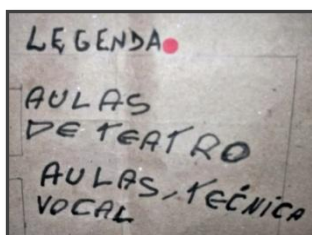 LEGENDA
AULAS
DE TEATRO
AULAS, TECNICA
VOCAL